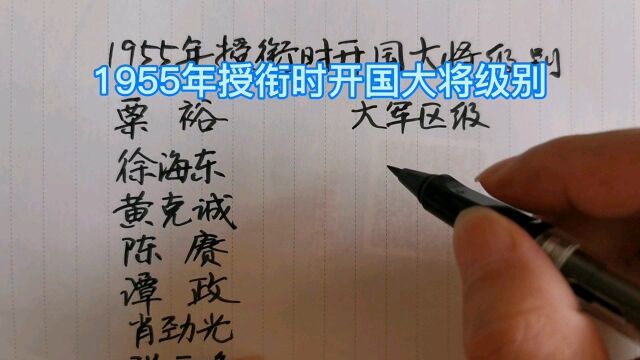 1955年授衔时开国大将级别
1955年授衔时开国大将级别
粟 裕 大军区级
徐海东
黄克诚
陈 赓
谭 政
肖劲光